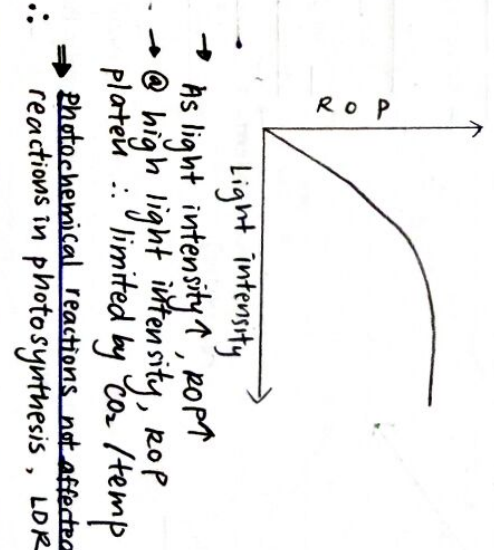 R O P
Light intensity
→ As light intensity↑, ROP↑
→ @ high light intensity, ROP
plateu ∴ limited by CO₂ /temp
⇒ Photochemical reactions not affected
∴ reactions in photosynthesis, LDR